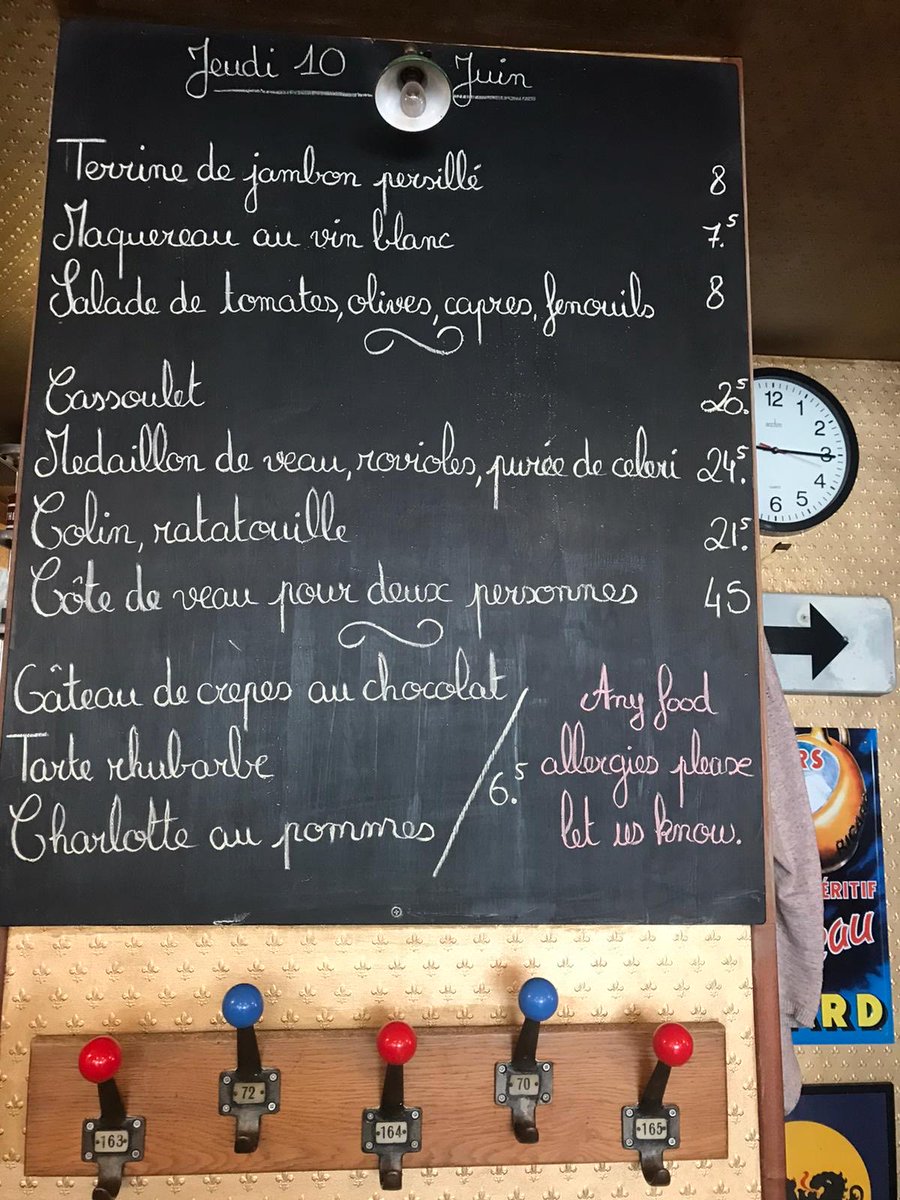 Jeudi 10 Juin
Terrine de jambon persillé 8
Maquereau au vin blanc 7.5
Salade de tomates, olives, capres, fenouils 8
Cassoulet 20.5
Medaillon de veau, rovioles, purée de celeri 24.5
Colin, ratatouille 21.5
Côte de veau pour deux personnes 45
Gâteau de crepes au chocolat
Tarte rhubarbe
Charlotte au pommes
6.5
Any food
allergies please
let us know.
12 1 2 3 4 5 6
RS
ÉRITIF
eau
ARD
163 72 164 70 165